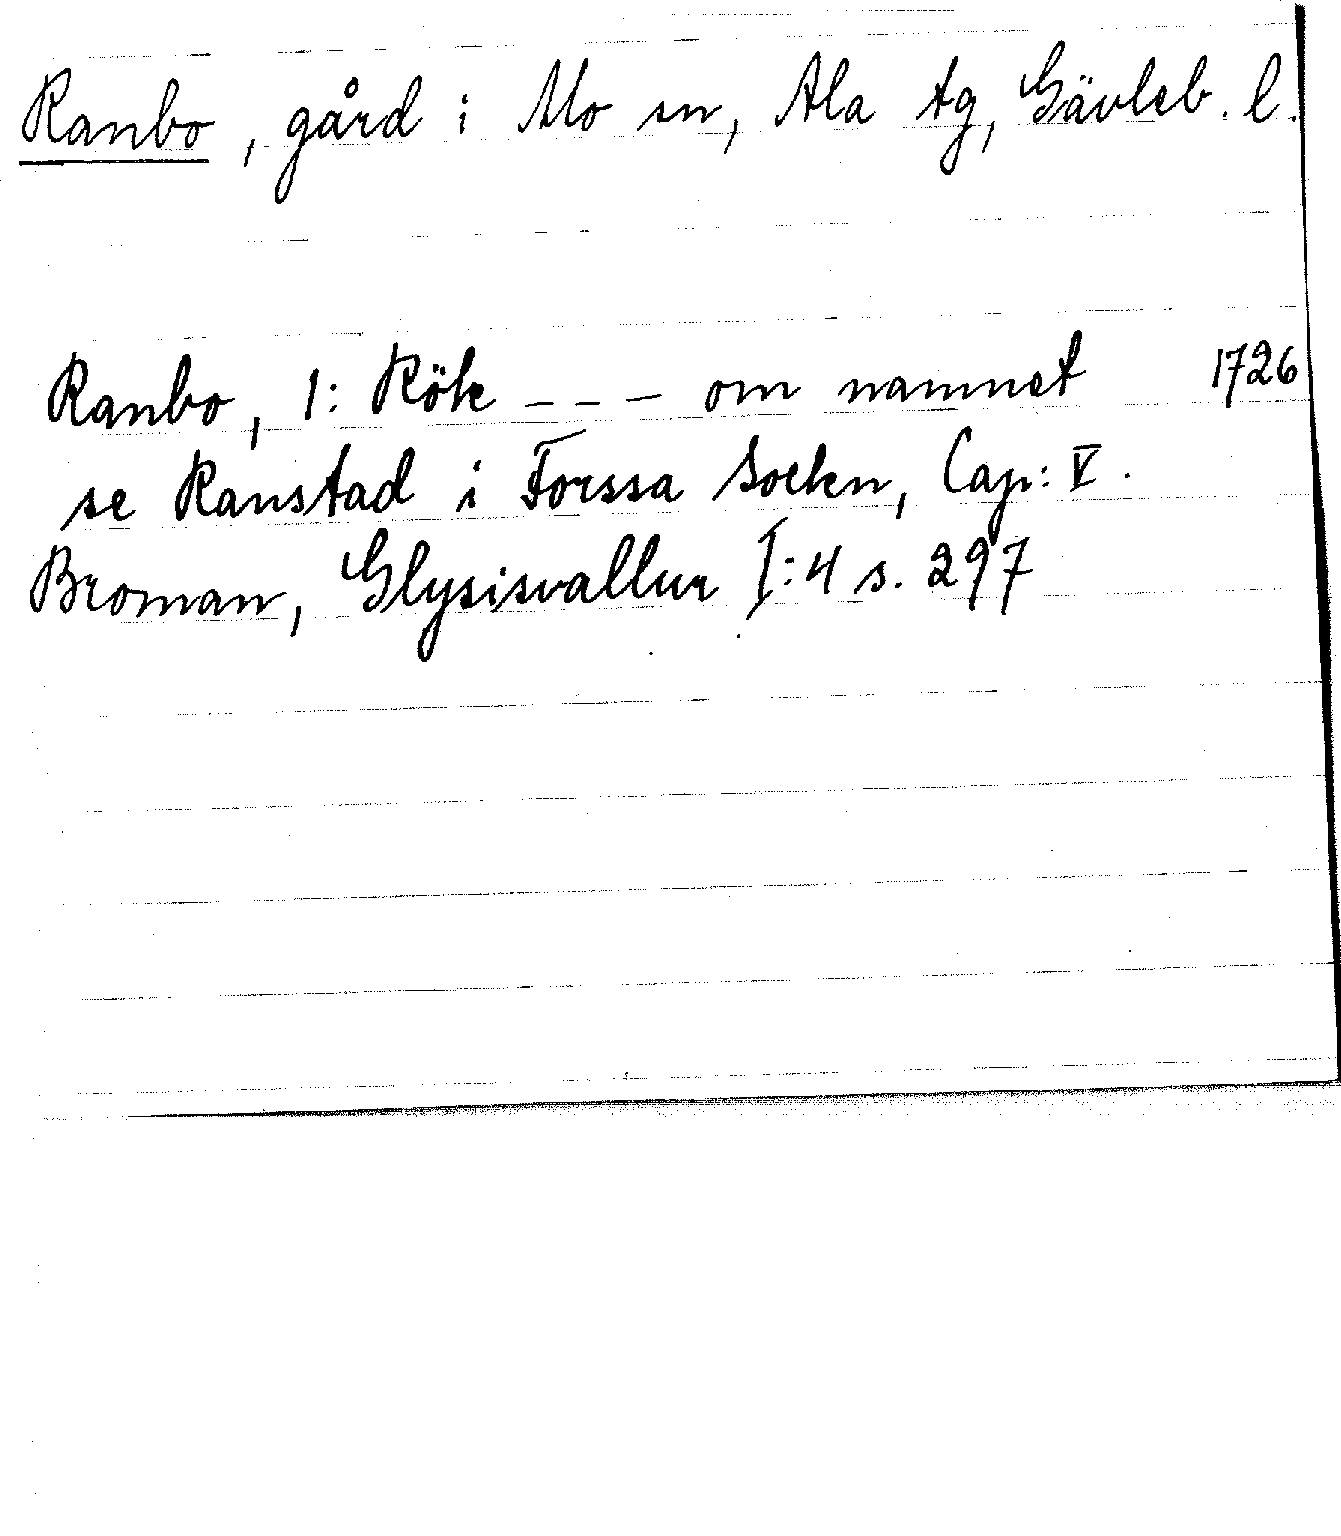 Ranbo, gård i Mo sn, Ala tg, Gävleb. l.
Ranbo, 1: Rök --- om namnet 1726
se Ranstad i Forssa Socken, Cap: V.
Broman, Glysisvallur I:4 s. 297